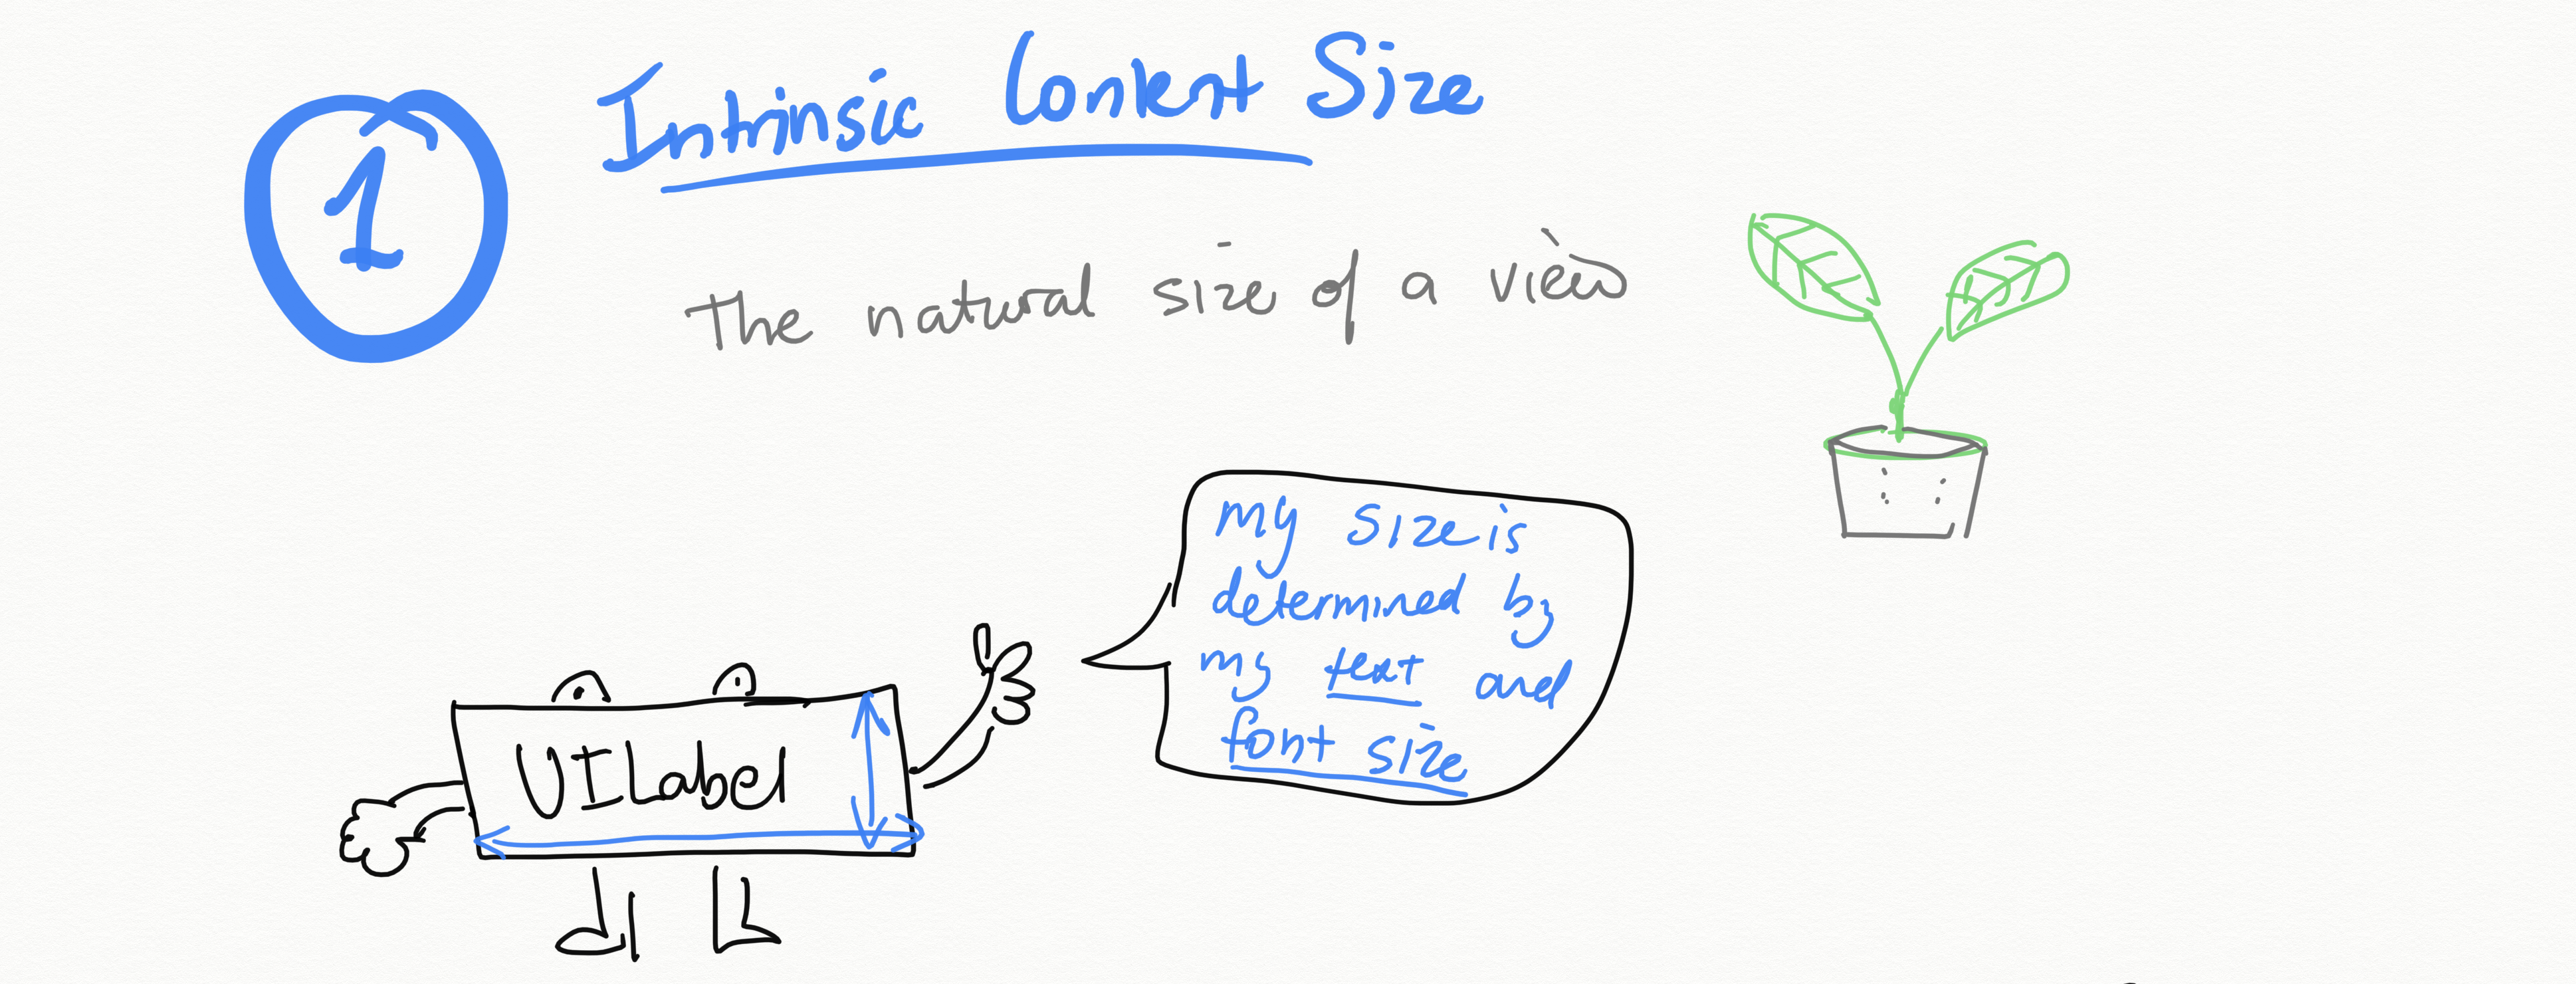 1
Intrinsic Content Size
The natural size of a view
my size is
determined by
my text and
font size
UILabel